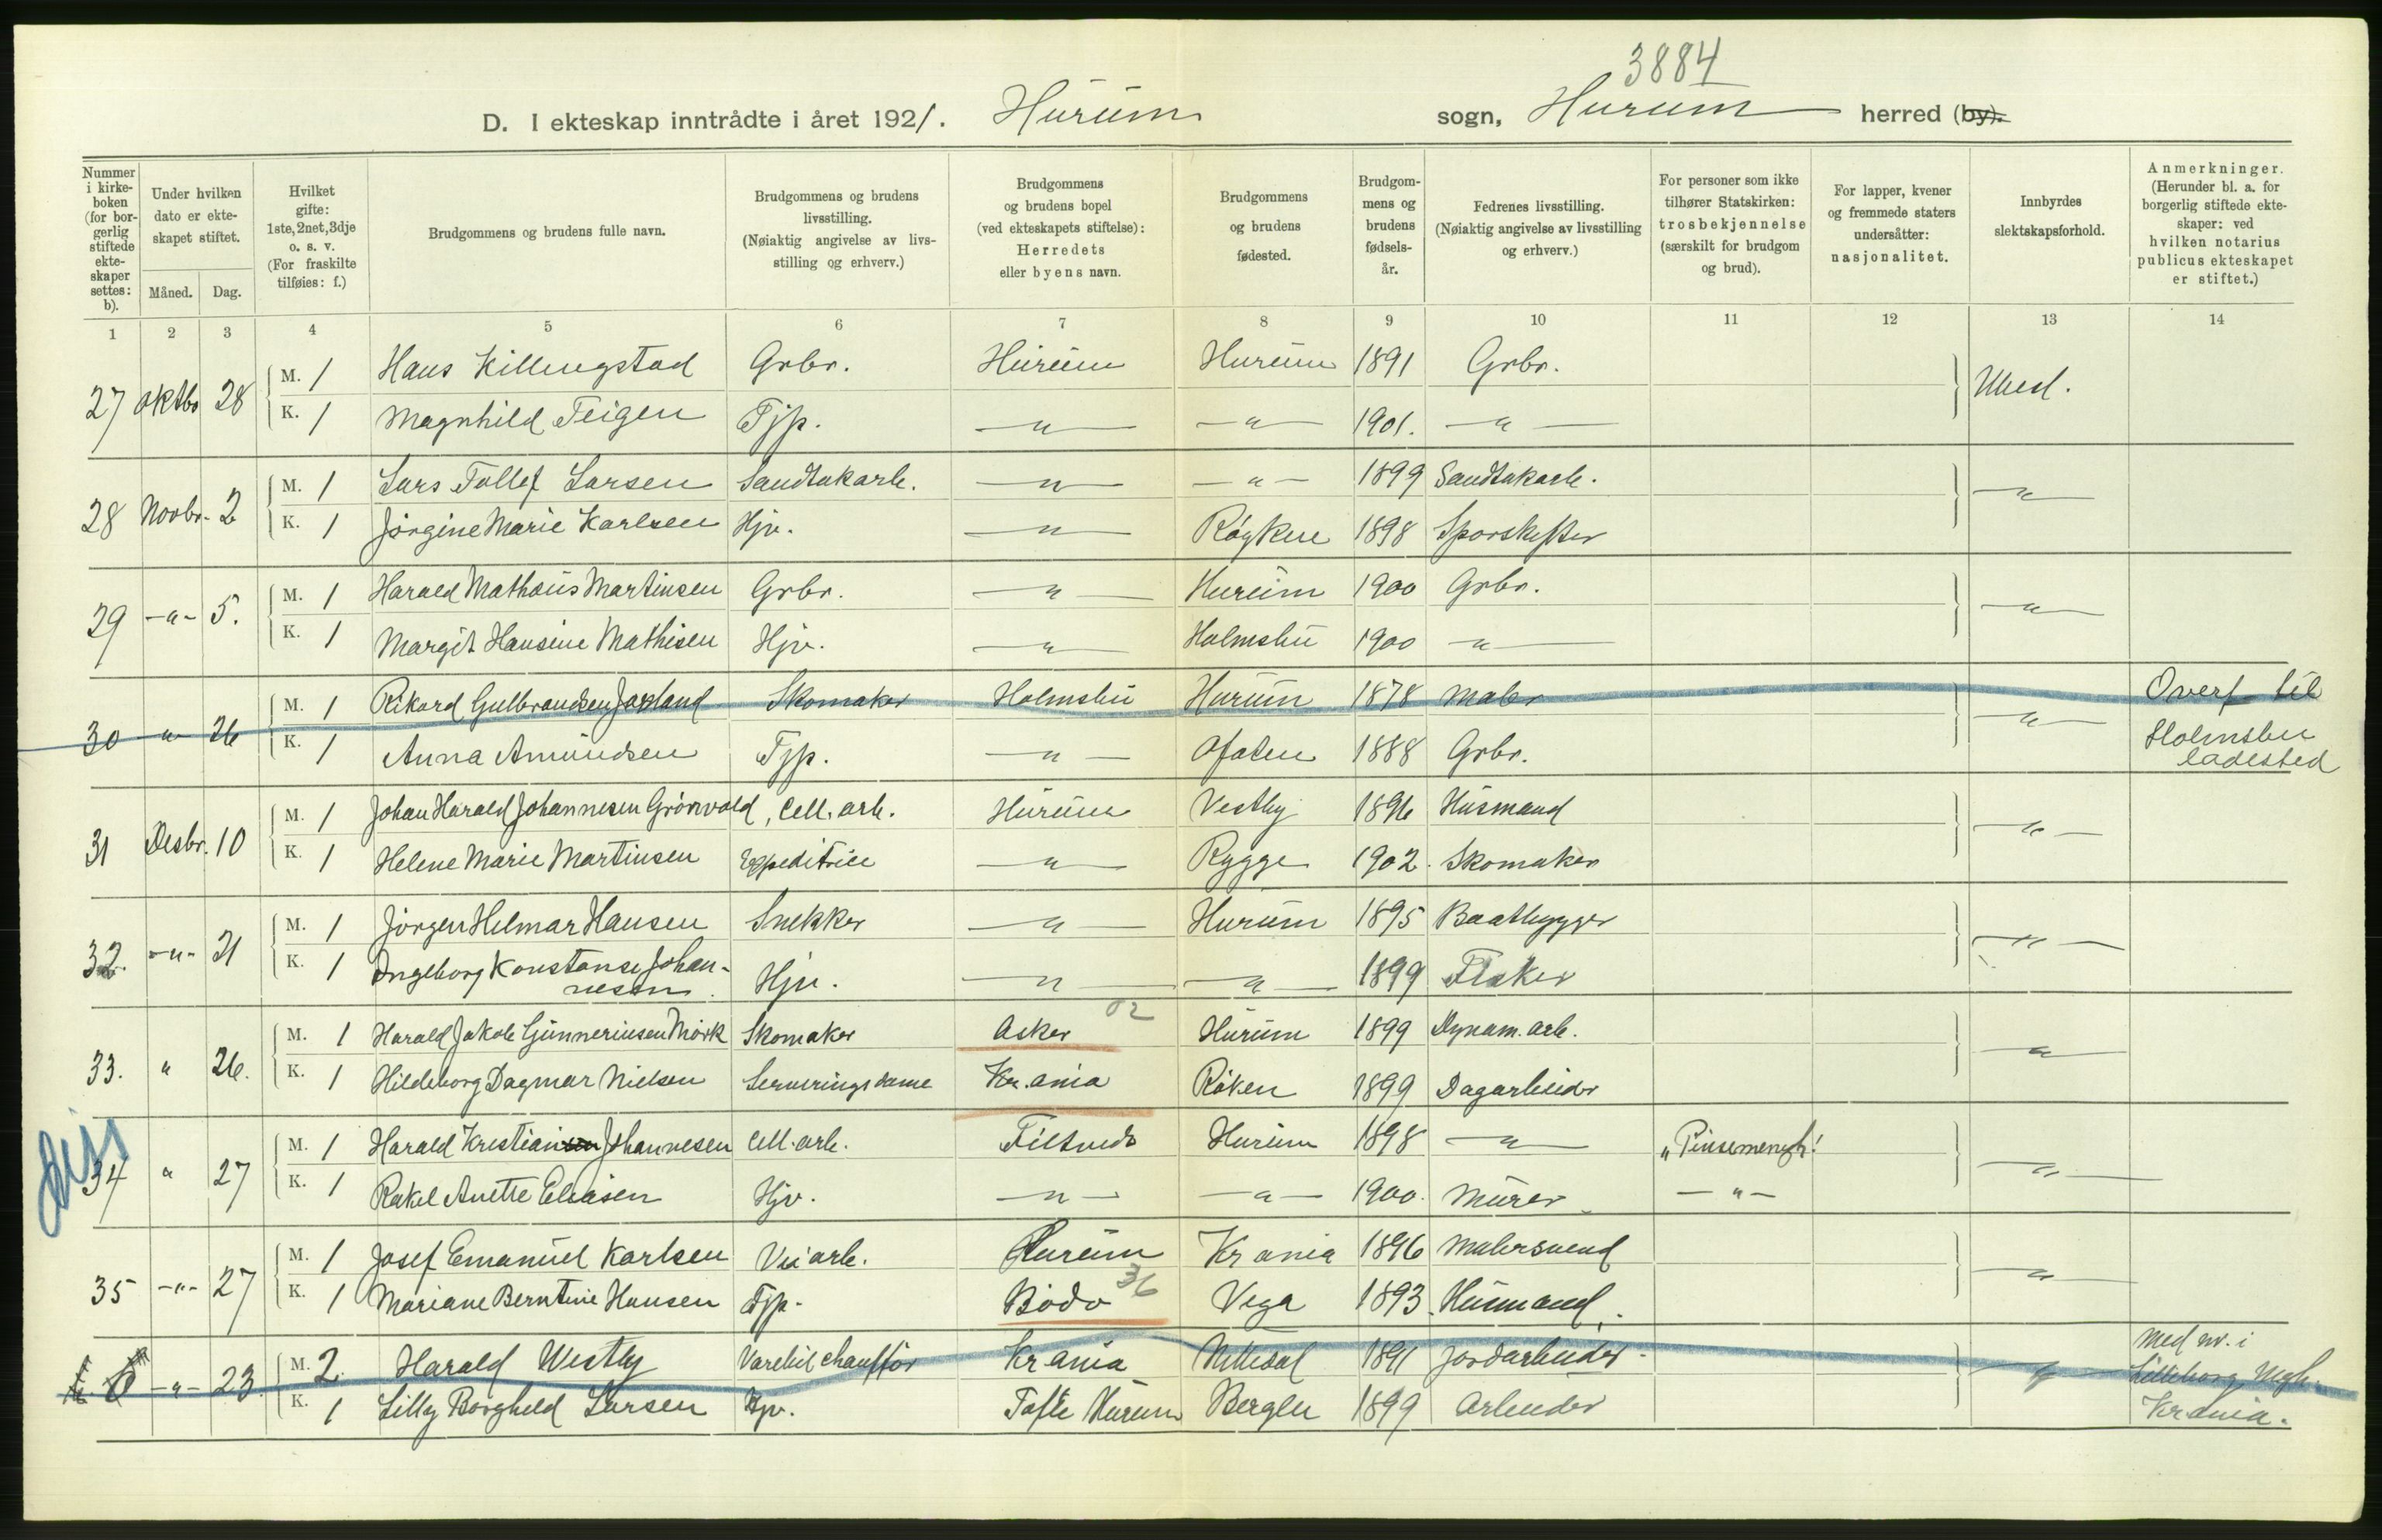 3884
D. I ekteskap inntrådte i året 1921. Hurum sogn, Hurum herred (by).
Nummer i kirkeboken (for borgerlig stiftede ekteskaper settes: b).
Under hvilken dato er ekteskapet stiftet.
Måned. Dag.
Hvilket gifte: 1ste, 2net, 3dje o. s. v. (For fraskilte tilføies: f.)
Brudgommens og brudens fulle navn.
Brudgommens og brudens livsstilling. (Nøiaktig angivelse av livsstilling og erhverv.)
Brudgommens og brudens bopel (ved ekteskapets stiftelse): Herredets eller byens navn.
Brudgommens og brudens fødested.
Brudgommens og brudens fødselsår.
Fedrenes livsstilling. (Nøiaktig angivelse av livsstilling og erhverv.)
For personer som ikke tilhører Statskirken: trosbekjennelse (særskilt for brudgom og brud).
For lapper, kvener og fremmede staters undersåtter: nasjonalitet.
Innbyrdes slektskapsforhold.
Anmerkninger. (Herunder bl. a. for borgerlig stiftede ekteskaper: ved hvilken notarius publicus ekteskapet er stiftet.)
1 2 3 4 5 6 7 8 9 10 11 12 13 14
27 Oktbr 28 M. 1 Hans Killingstad Grbr. Hurum Hurum 1891 Grbr. Ubesl.
K. 1 Magnhild Teigen Tjp. -"- -"- 1901. -"-
28 Novbr. 2 M. 1 Lars Tollef Larsen Sandtakarb. -"- -"- 1899 Sandtakarb. -"-
K. 1 Jørgine Marie Karlsen Hjv. -"- Røyken 1898 Sporskifter
29 -"- 5. M. 1 Harald Mathæus Martinsen Grbr. -"- Hurum 1900 Grbr. -"-
K. 1 Margit Hansine Mathisen Hjv. -"- Holmsbu 1900 -"-
30 -"- 26 M. 1 Rikard Gulbrandsen Joxland Skomaker Holmsbu Hurum 1878 Maler -"- Overf. til
K. 1 Anna Amundsen Tjp. -"- Ofoten 1888 Grbr. Holmsbu ladested
31 Desbr. 10 M. 1 Johan Harald Johannesen Grönvold, Cell. arb. Hurum Vestby 1896 Husmand -"-
K. 1 Helene Marie Martinsen Expeditrice -"- Rygge 1902. Skomaker
32. -"- 21 M. 1 Jörgen Helmar Hansen Snekker -"- Hurum 1895 Baatbygger -"-
K. 1 Ingeborg Konstanse Johannesen. Hjv. -"- -"- 1899 Fisker
02
33. " 26. M. 1 Harald Jakob Gunneriusen Mörk Skomaker Asker Hurum 1899 Dynam. arb. -"-
K. 1 Hildeborg Dagmar Nielsen Serveringsdame Kr.ania Röken 1899 Dagarbeider
34 " 27 M. 1 Harald Kristian Johannesen Cell. arb. Filtvedt Hurum 1898 -"- "Pinsemenigh! -"-
K. 1 Rakel Anette Eliasen Hjv. -"- -"- 1900. Murer -"-
35 -"- 27 M. 1 Josef Emanuel Karlsen Veiarb. Hurum Kr ania 1896 Malersvend -"-
36
K. 1 Mariane Berntine Hansen Tjp. Bodø Vega 1893. Husmand.
-"- 23. M. 2. Harald Westby Varebilchaufför Kr ania Nittedal 1891 Jordarbeider -"- Med nv. i
Lilleborg Mgh.
K. 1 Lilly Borghild Larsen Hjv. Tofte Hurum Bergen 1899 Arbeider Kr.ania.